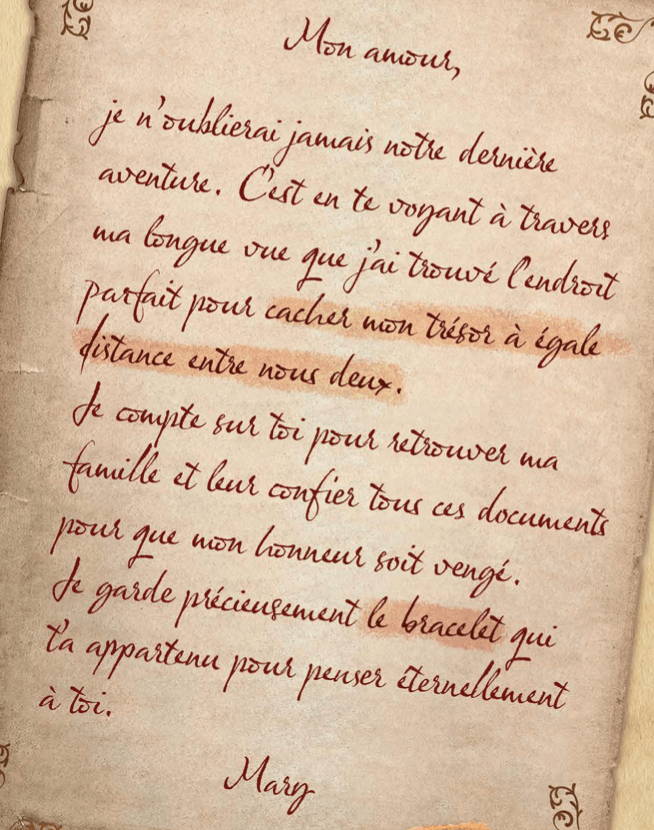 Mon amour,
je n'oublierai jamais notre dernière
aventure. C'est en te voyant à travers
ma longue vue que j'ai trouvé l'endroit
parfait pour cacher mon trésor à égale
distance entre nous deux.
Je compte sur toi pour retrouver ma
famille et leur confier tous ces documents
pour que mon honneur soit vengé.
Je garde précieusement le bracelet qui
t'a appartenu pour penser éternellement
à toi.
Mary